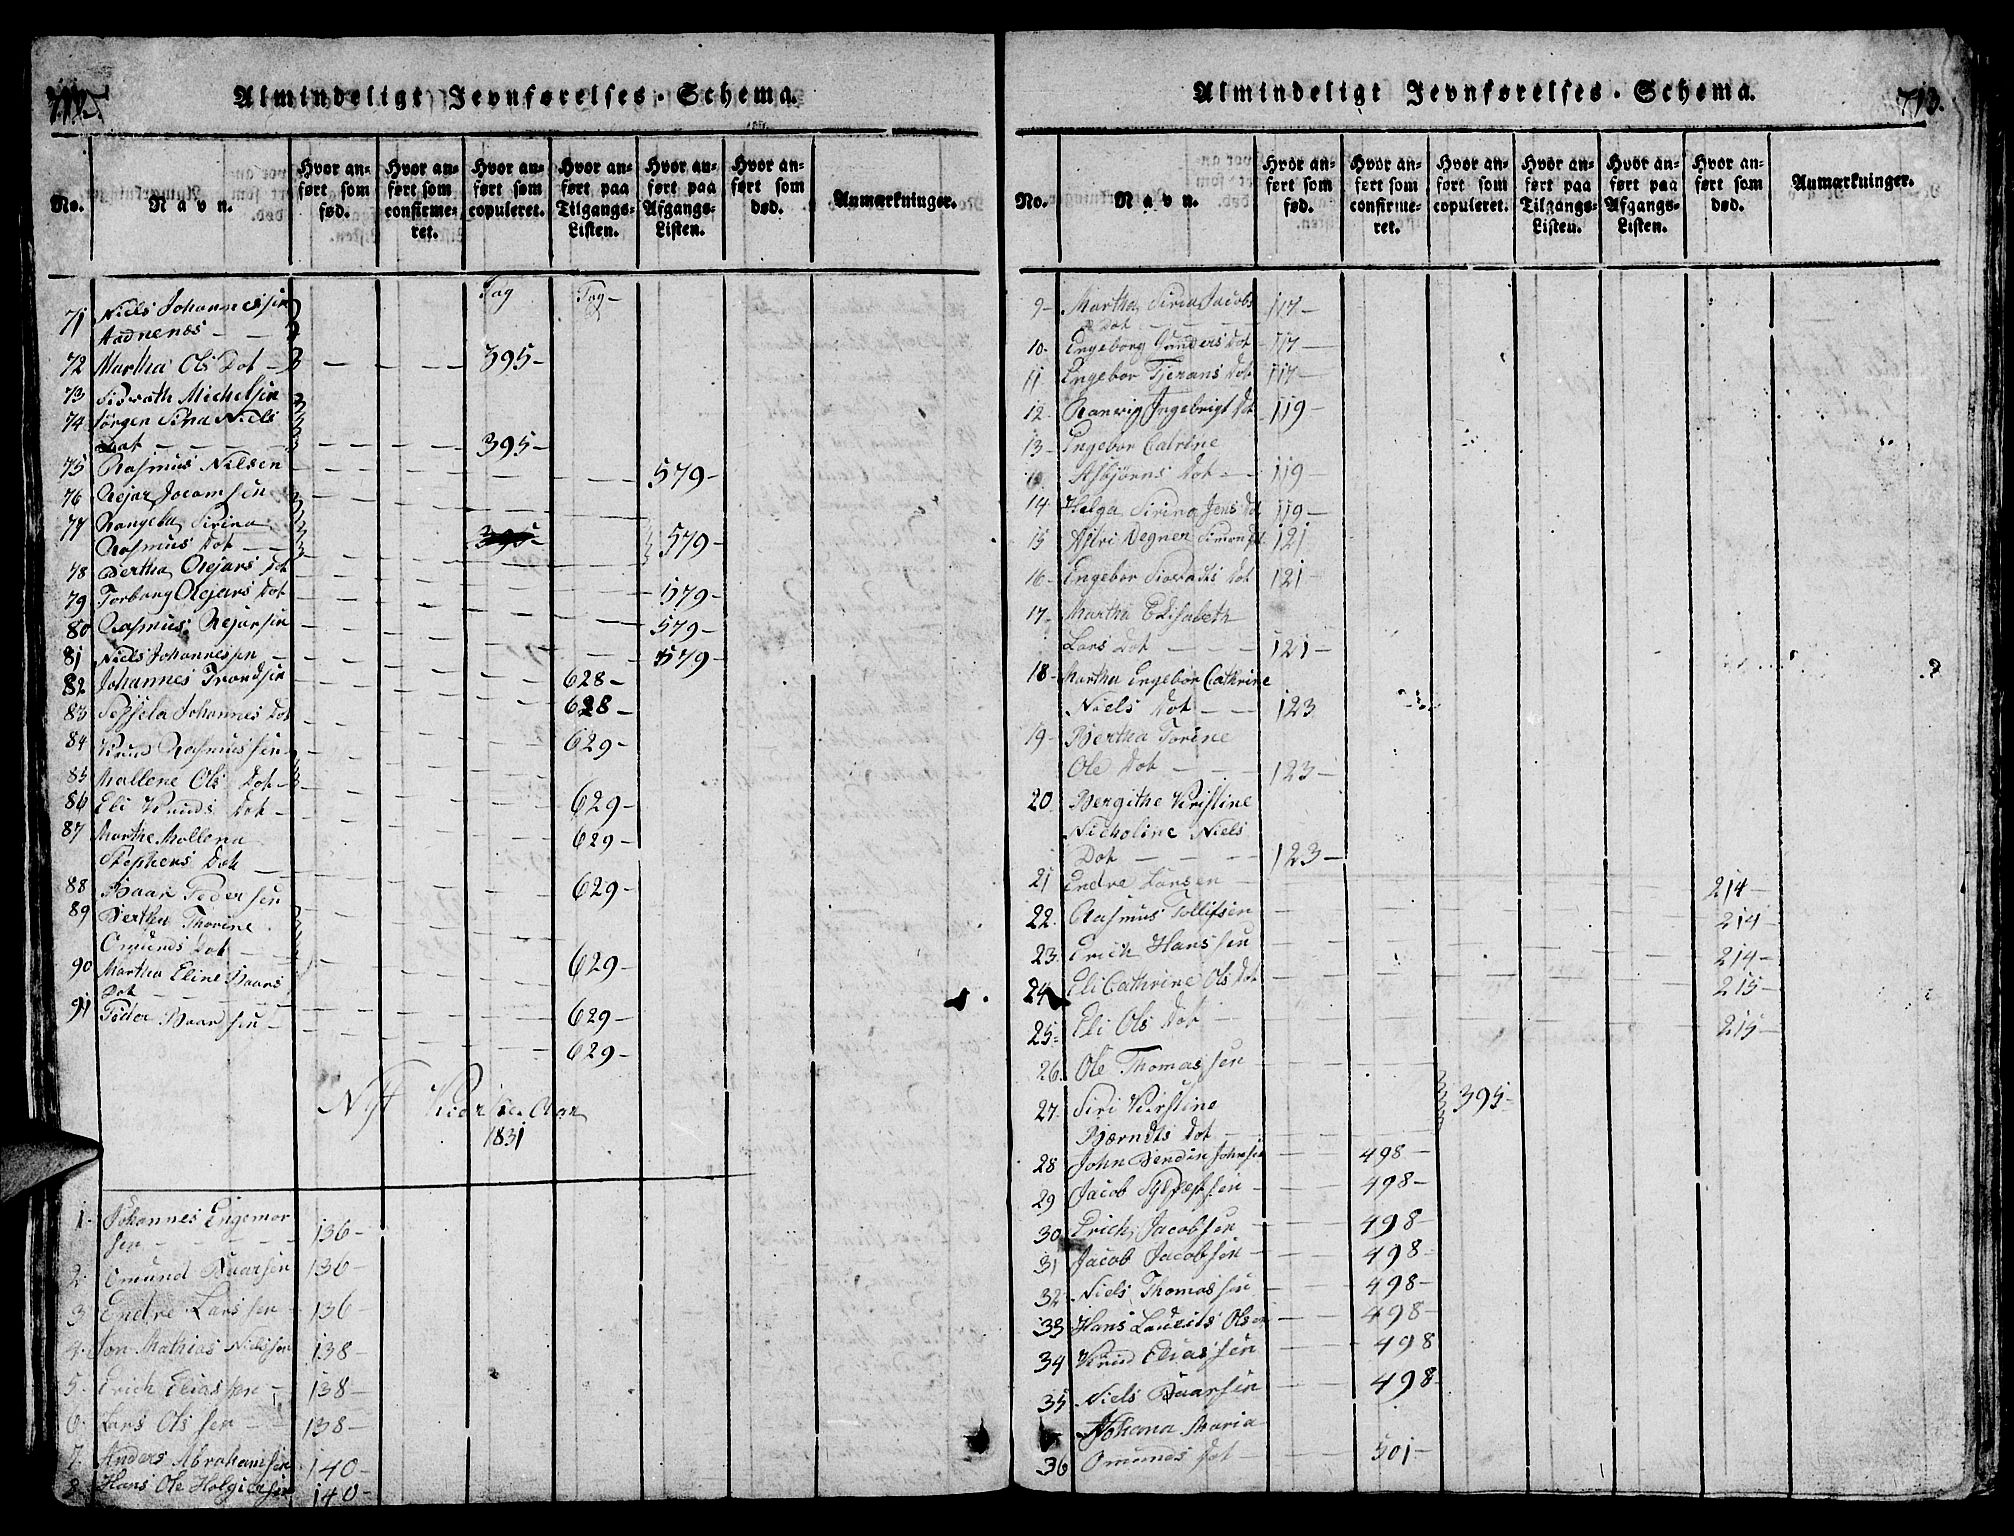 712.
Almindeligt Jevnførelses-Schema.
No.
Navn.
Hvor anført som fød.
Hvor anført som confirmeret.
Hvor anført som copuleret.
Hvor anført paa Tilgangs-Listen.
Hvor anført paa Afgangs-Listen.
Hvor anført som død.
Anmærkninger.
Pag Pag
71 Niels Johannessen
Aadnenæs
72 Martha Ols Dot 395
73 Sivrath Michelsen
74 Jørgen Sina Niels
Dot 395
75 Rasmus Nilsen 579
76 Rejar Jocomsen
77 Rangela Sirina
Rasmus Dot 395 579
78 Bertha Rejars Dot
79 Torborg Rejars Dot 579
80 Rasmus Rejarsen 579
81 Niels Johannessen 579
82 Johannes Trondsen 628
83 Johannes Dot 628
84 Knud Rasmussen 629
85 Mallene Ols Dot
86 Eli Knuds Dot 629
87 Marthe Mollena 629
Stephens Dot
88 Baar Pedersen 629
89 Bertha Thorine
Omunds Dot
90 Martha Eline Baars 629
Dot
91 Peder Baarsen 629
629
Nyt Kirke Aar
1831
1. Johannes Engemor
sen 136
2. Omund Baarsen 136
3 Endre Larssen 136
4. Jon Mathias Nielssen 138
5. Erich Eliassen 138
6. Lars Olssen 138
7. Anders Abrahamsen 140
8. Hans Ole Holgiersen 140
Almindeligt Jevnførelses-Schema.
713.
No.
Navn.
Hvor anført som fød.
Hvor anført som confirmeret.
Hvor anført som copuleret.
Hvor anført paa Tilgangs-Listen.
Hvor anført paa Afgangs-Listen.
Hvor anført som død.
Anmærkninger.
9 Martha Siria Jacobs 117
Dot
10 Engeborg Gunders Dot 117
11 Engebor Tjerans Dot 117
12 Ranvig Ingebrigt Dot 119
13 Ingebor Catrine
Asbjørns Dot 119
14 Helga Sirina Jens Dot 119
15 Astri Degner Simon Dot 121
16 Engebor Siovradts Dot 121
17 Martha Elisabeth
Lars Dot 121
18 Martha Engebor Cathrine
Niels Dot 123
19 Bertha Torine
Ole Dot 123
20 Bergithe Kristine
Nicholine Niels
Dot 123
21 Endre Larsen 214
22. Rasmus Tollifsen 214
23 Erich Hanssen 214
24 Eli Cathrine Ols Dot 215
25 Eli Ols Dot 215
26 Ole Thomassen
27 Siri Kirstine 395
Bærndts Dot
28 John Bendix Johnsen 498
29 Jacob Sylvestsen 498
30 Erich Jacobsen 498
31 Jacob Jacobsen 498
32 Niels Thomassen 498
33 Hans Laurits Olsen 498
34 Knud Eliassen 498
35 Niels Baarsen 498
Johana Maria
36 Omunds Dot 501